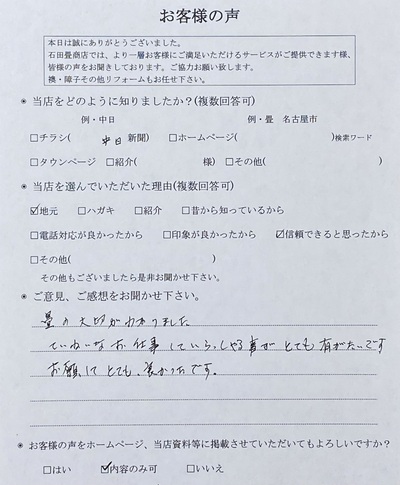 お客様の声
本日は誠にありがとうございました。
石田畳商店では、より一層お客様にご満足いただけるサービスがご提供できます様、
皆様の声をお聞きしております。ご協力お願い致します。
襖・障子その他リフォームもお任せ下さい。
◉ 当店をどのように知りましたか?(複数回答可)
例・中日 例・畳 名古屋市
□チラシ( 中日 新聞) □ホームページ( )検索ワード
□タウンページ □紹介( 様) □その他( )
◉ 当店を選んでいただいた理由(複数回答可)
☑地元 □ハガキ □紹介 □昔から知っているから
□電話対応が良かったから □印象が良かったから ☑信頼できると思ったから
□その他( )
その他もございましたら是非お聞かせ下さい。
◉ ご意見、ご感想をお聞かせ下さい。
畳の大切がわかりました
ていねいなお仕事していらっしゃる事がとても有がたいです
お願してとても良かったです。
◉ お客様の声をホームページ、当店資料等に掲載させていただいてもよろしいですか?
□はい ☑内容のみ可 □いいえ